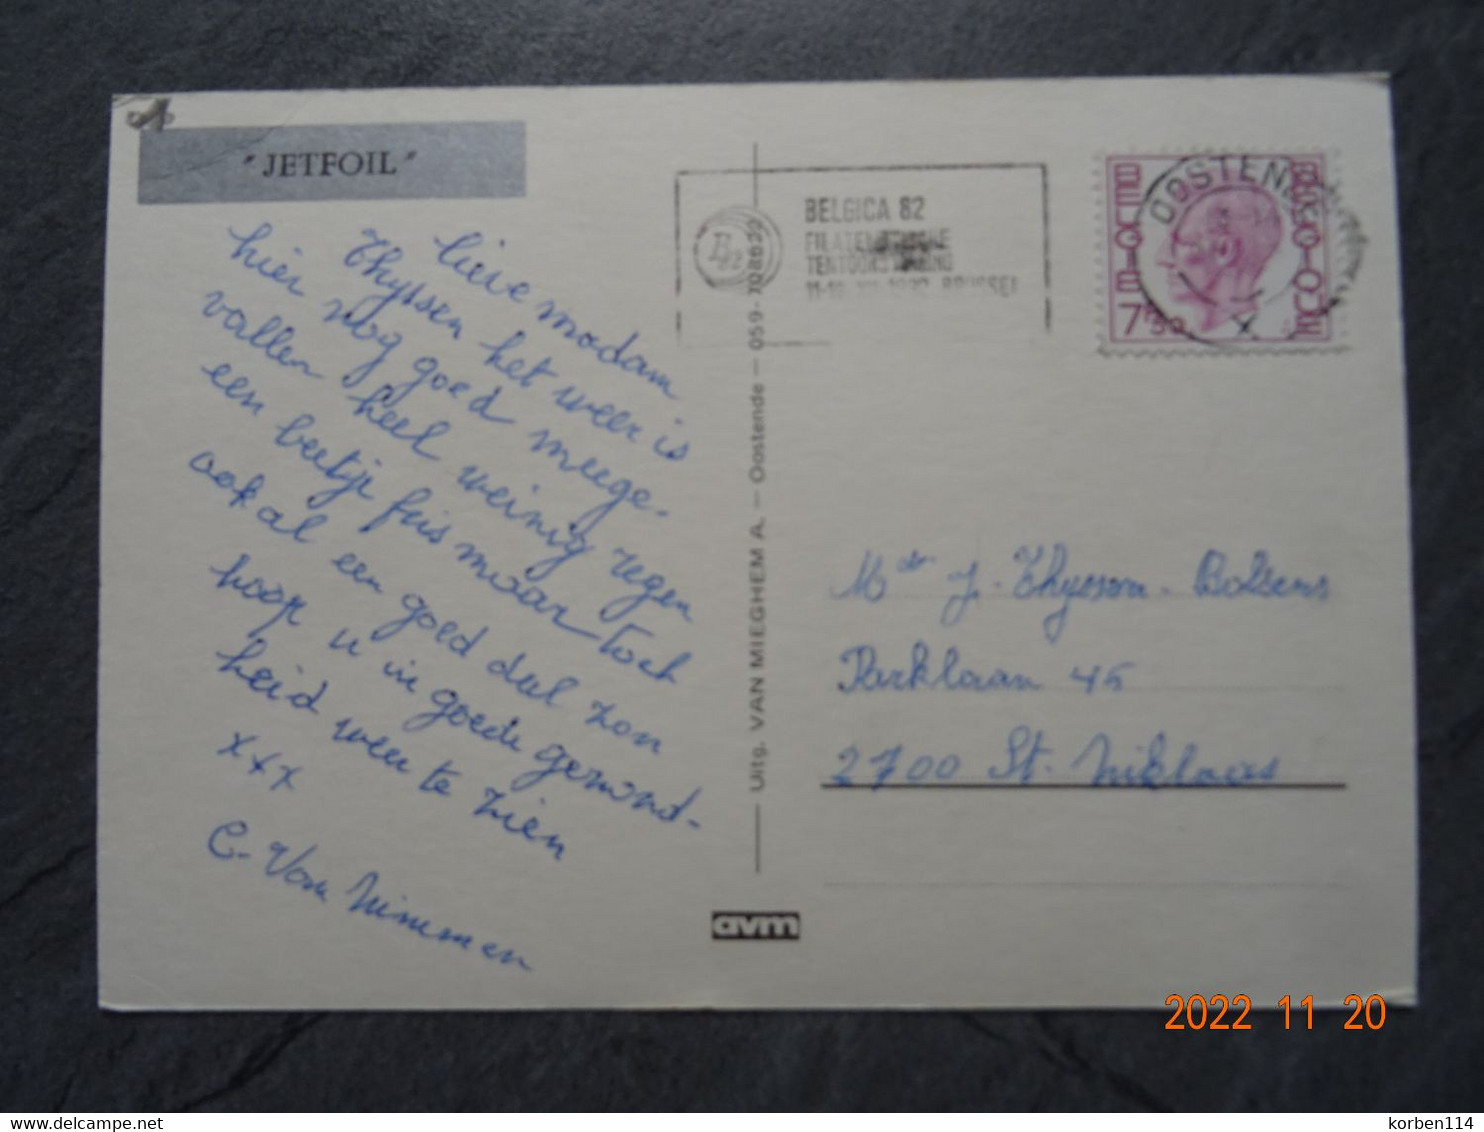 "JETFOIL"
lieve madam
Thyssen het weer is
hier nog goed meege-
vallen heel weinig regen
een beetje fris maar toch
ook al een goed deel zon
hoop u in goede gezond-
heid weer te zien
xxx
C. Van Nimmen
Uitg. VAN MIEGHEM A. — Oostende — 059-708622
avm
BELGICA 82
FILATELISTISCHE
TENTOONSTELLING
11-19 XII 1982 BRUSSEL
OOSTENDE
BELGIE BELGIQUE
7F50
Mevr J. Thyssen-Boltens
Parklaan 45
2700 St. Niklaas
2022 11 20
korben114